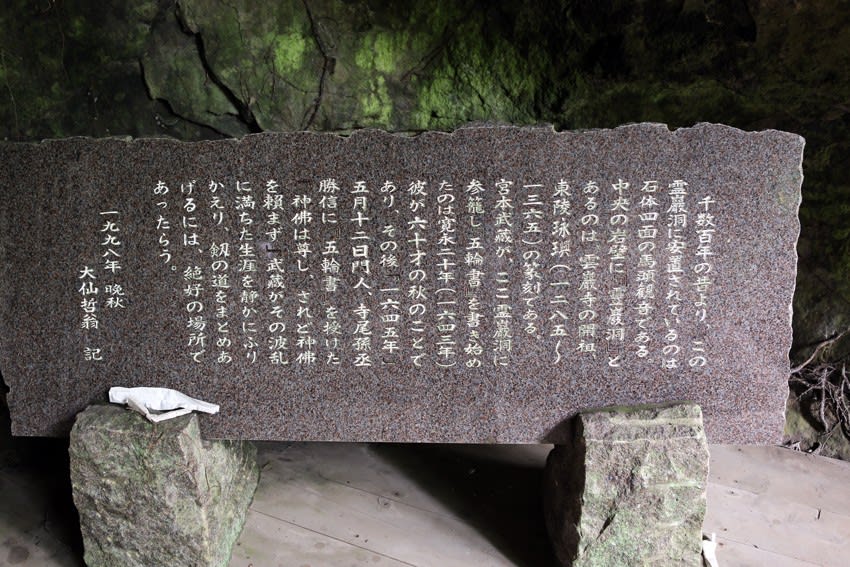 千数百年の昔より、この
霊巌洞に安置されているのは
石体四面の馬頭観音である
中央の岩壁に「霊巌洞」と
あるのは 雲巌寺の開祖
東陵永璵(一二八五~
一三六五)の篆刻である。
宮本武蔵が、ここ霊巌洞に
参籠し「五輪書」を書き始め
たのは寛永二十年(一六四三年)
彼が六十才の秋のことで
あり、その後「一六四五年」
五月十二日門人、寺尾孫丞
勝信に「五輪書」を授けた
「神佛は尊し されど神佛
を頼まず」武蔵がその波乱
に満ちた生涯を静かにふり
かえり、剱の道をまとめあ
げるには、絶好の場所で
あったらう。
一九九八年 晩秋
大仙哲翁 記